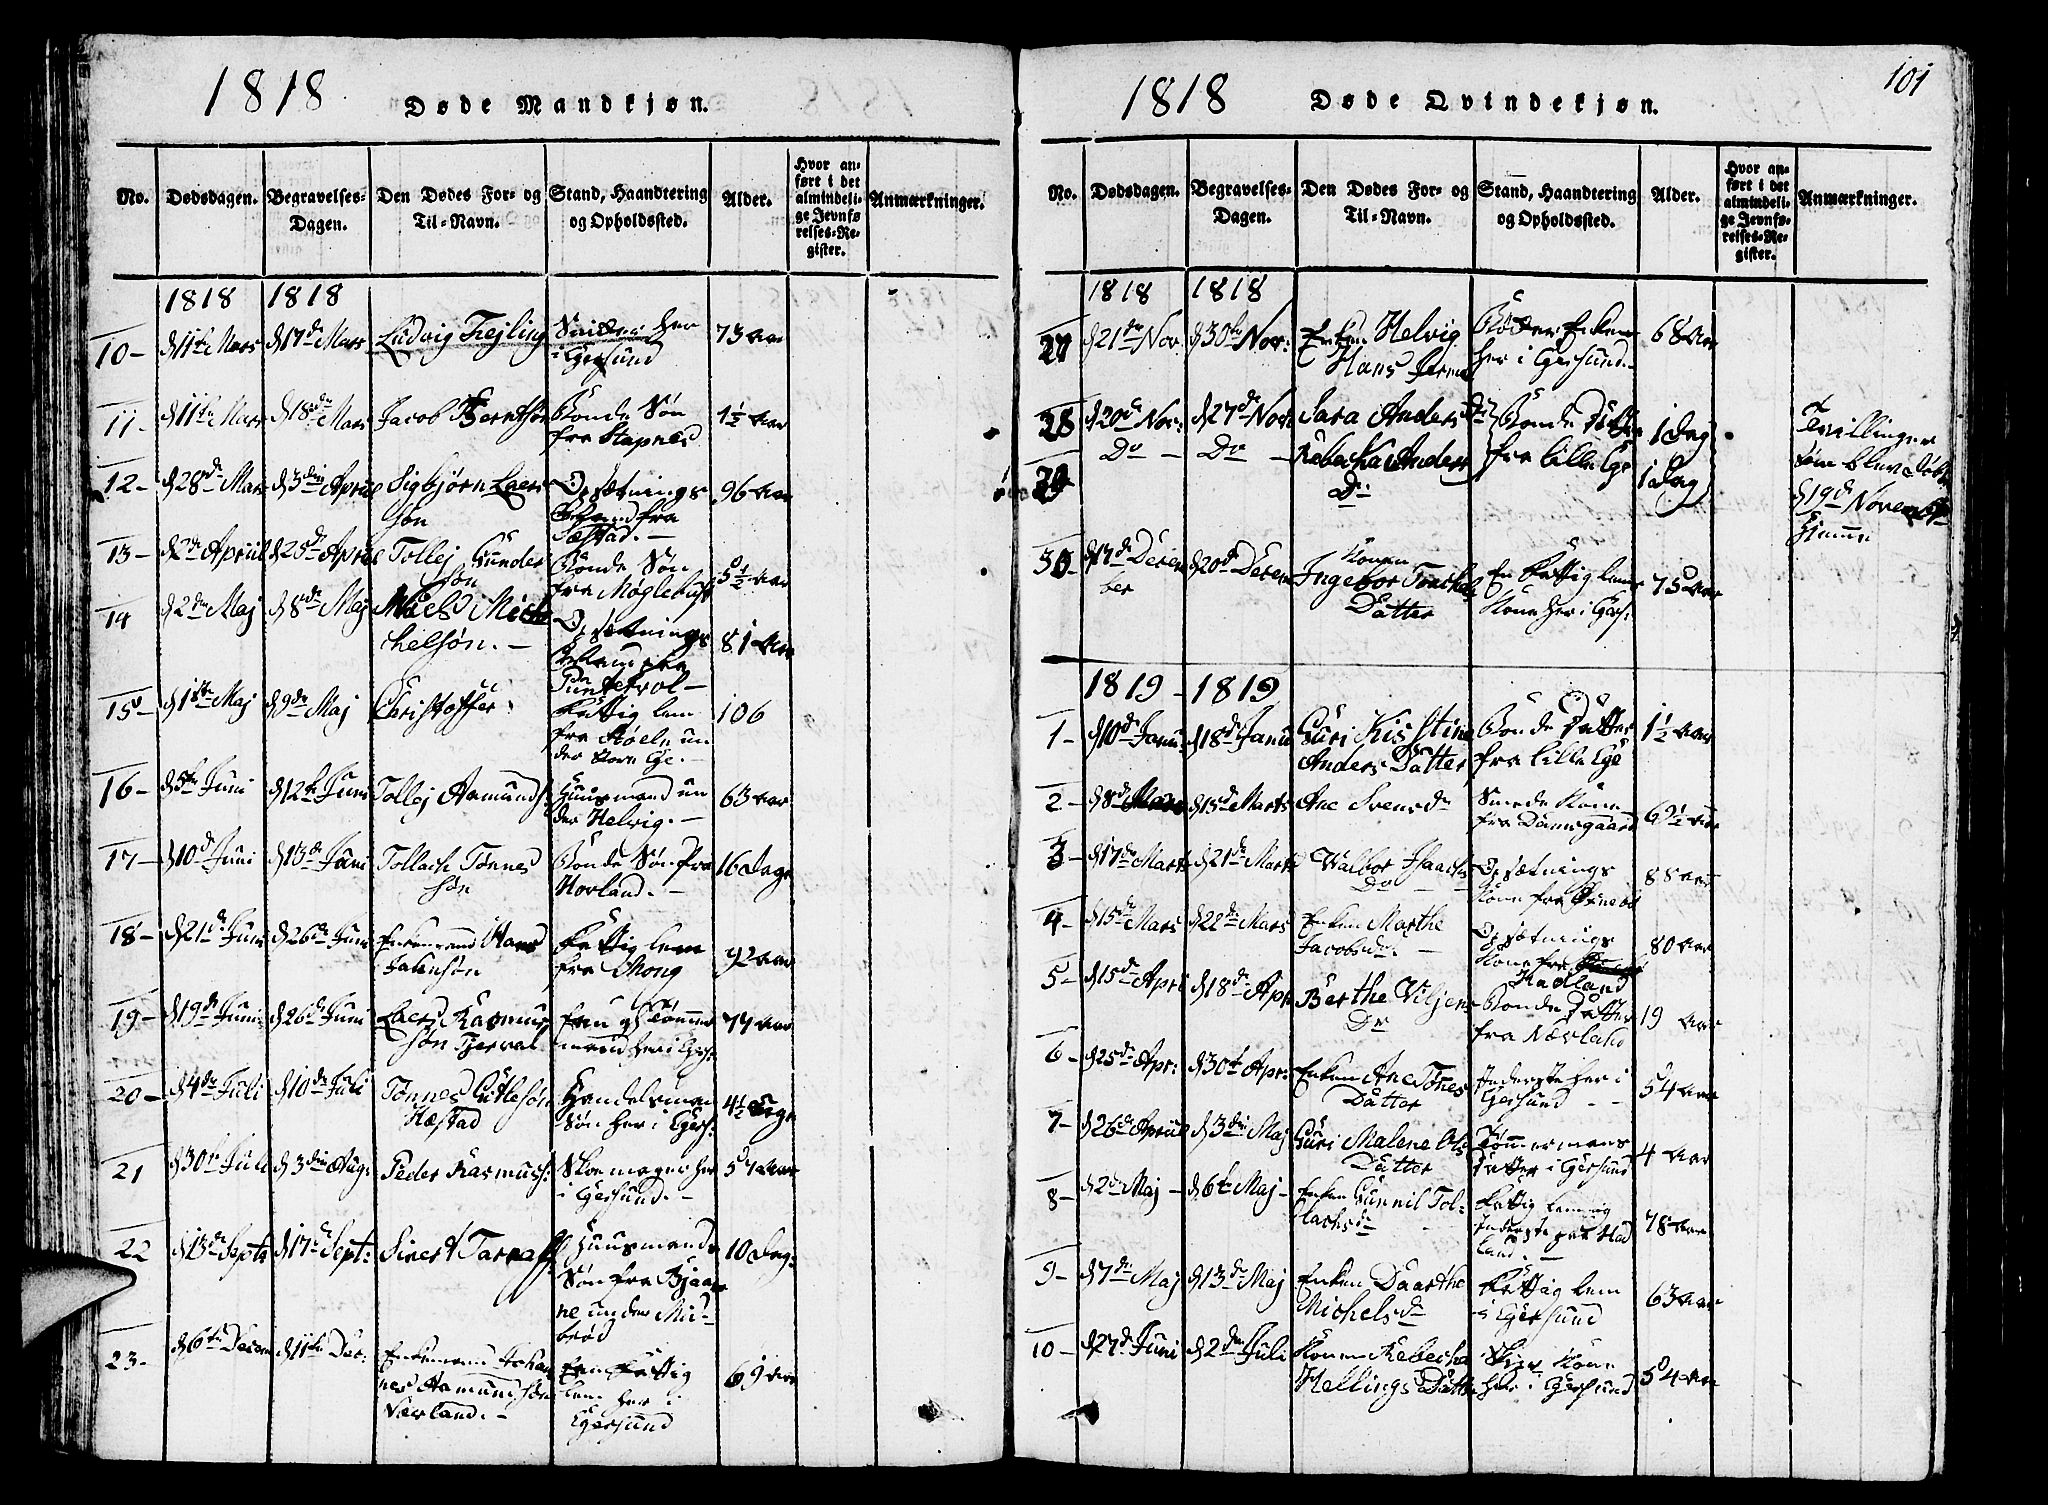 1818 Døde Mandkjøn.
No. Dødsdagen. Begravelses-Dagen. Den Dødes For- og Til-Navn. Stand, Haandtering og Opholdssted. Alder. Hvor anført i det almindelige Jevnførelses-Register. Anmærkninger.
1818 1818
10 - d 11te Mars d 17de Mars Ludvig Frejling her i Egersund 73 Aar
11 - d 11te Mars d 18de Mars Jacob Berntsøn Bonde Søn fra Stapnes 1½ Aar
12 - d 28de Mars d 3die Apriil Sigbjørn Laersøn Opsætnings fra Sæstad. - 96 Aar
13 - d 2den Apriil d 25de Apriil Tollej Gundersøn Bonde Søn fra Møglebust 5½ Aar
14 d 2den Maj d 8de Maj Niels Michelsøn. - Opsætnings fra Puntervol - 81 Aar
15 - d 1ste Maj d 9de Maj Christoffer. Fattig lem fra Støele under Store Ege. - 106
16 - d 5te Juni d 12te Juni Tollej Aamunds: Huusmand under Helvig. - 63 Aar
17 - d 10de Juni d 13de Juni Tollach Tønnessøn Bonde Søn fra Hovland. - 16 Dage
18 - d 21de Juni d 26de Juni Enkemand Hans Jakensøn Fattig lem fra Mong 92 Aar
19 - d 19de Juni d 26de Juni Laers Rasmussøn Tjerval Tømmermand her i Egers: 77 Aar
20 - d 4de Juli d 10de Juli Tønnes Gutlesøn Hæstad Handelsmans Søn her i Egers: 4½ Dage
21 d 30te Juli d 3die Aug: Peder Rasmuss: Skoemager her i Egersund. - 57 Aar
22 d 13de Septr d 17de Sept: Sivert Taraldss: Huusmands Søn fra Bjaarne under Midbrød 10 Dag:
23 - d 6te Decem d 11te Dec: Enkemand Johannes Aamundsøn Værland. - Een Fattig lem her i Egersund 69 Aar
101
1818 Døde Qvindekjøn.
No. Dødsdagen. Begravelses-Dagen. Den Dødes For- og Til-Navn. Stand, Haandtering og Opholdssted. Alder. Hvor anført i det almindelige Jevnførelses-Register. Anmærkninger.
1818 1818
27 d 21de Nov. d 30te Nov: Enken Helvig Hans Enken her i Egersund. - 68 Aar
28 d 20de Nov: d 27de Nov: Sara Anders Dr Bonde Datter fra Lille Ege 1 Dag Tvillinger som blev Døbt d 19de November Hiemme
29 Do - Do - Rebecha Anders Dr 1 Dag
30 - d 17de December d 20de Decem Konen Ingebor Datter En Fattig lem Kone her i Egers: 75 Aar
1819 - 1819
1 - d 10de Janu d 18de Janu Guri Kistine Anders Datter Bonde Datter fra Lille Ege 1½ Aar
2 - d 8de Mars d 15de Marts Ane Svens dr Smede Kone fra Damsgaard 69½ Aar
3 - d 17de Marts d 21de Marts Walbor Isaachs Dr Opsætnings Kone fra 88 Aar
4 - d 15de Mars d 22de Mars Enken Marthe Jacobsdr. - Opsætnings Kone fra Hadland 80 Aar
5 - d 15de April d 18de Apr: Berthe Viljems Dr Bonde Datter fra Nærland 19 Aar
6 - d 25de Apr: d 30te Apr: Enken Ane Tønes Datter Inderste her i Egersund - - 54 Aar
7 - d 26de Apriil d 3die Maj Guri Malene Ols Datter Tømmermans Datter i Egersund 4 Aar
8 - d 2de Maj - d 6te Maj - Enken Gunnil Tollachsdr Fattig lem og Inderste fra Hadland. - 78 Aar
9 - d 7de Maj d 13de Maj Enken Daarthe Michelsdr Fattig lem i Egersund 63 Aar
10 - d 27de Juni d 2den Juli Konen Rebecha Hellings Datter Kone her i Egersund 54 Aar